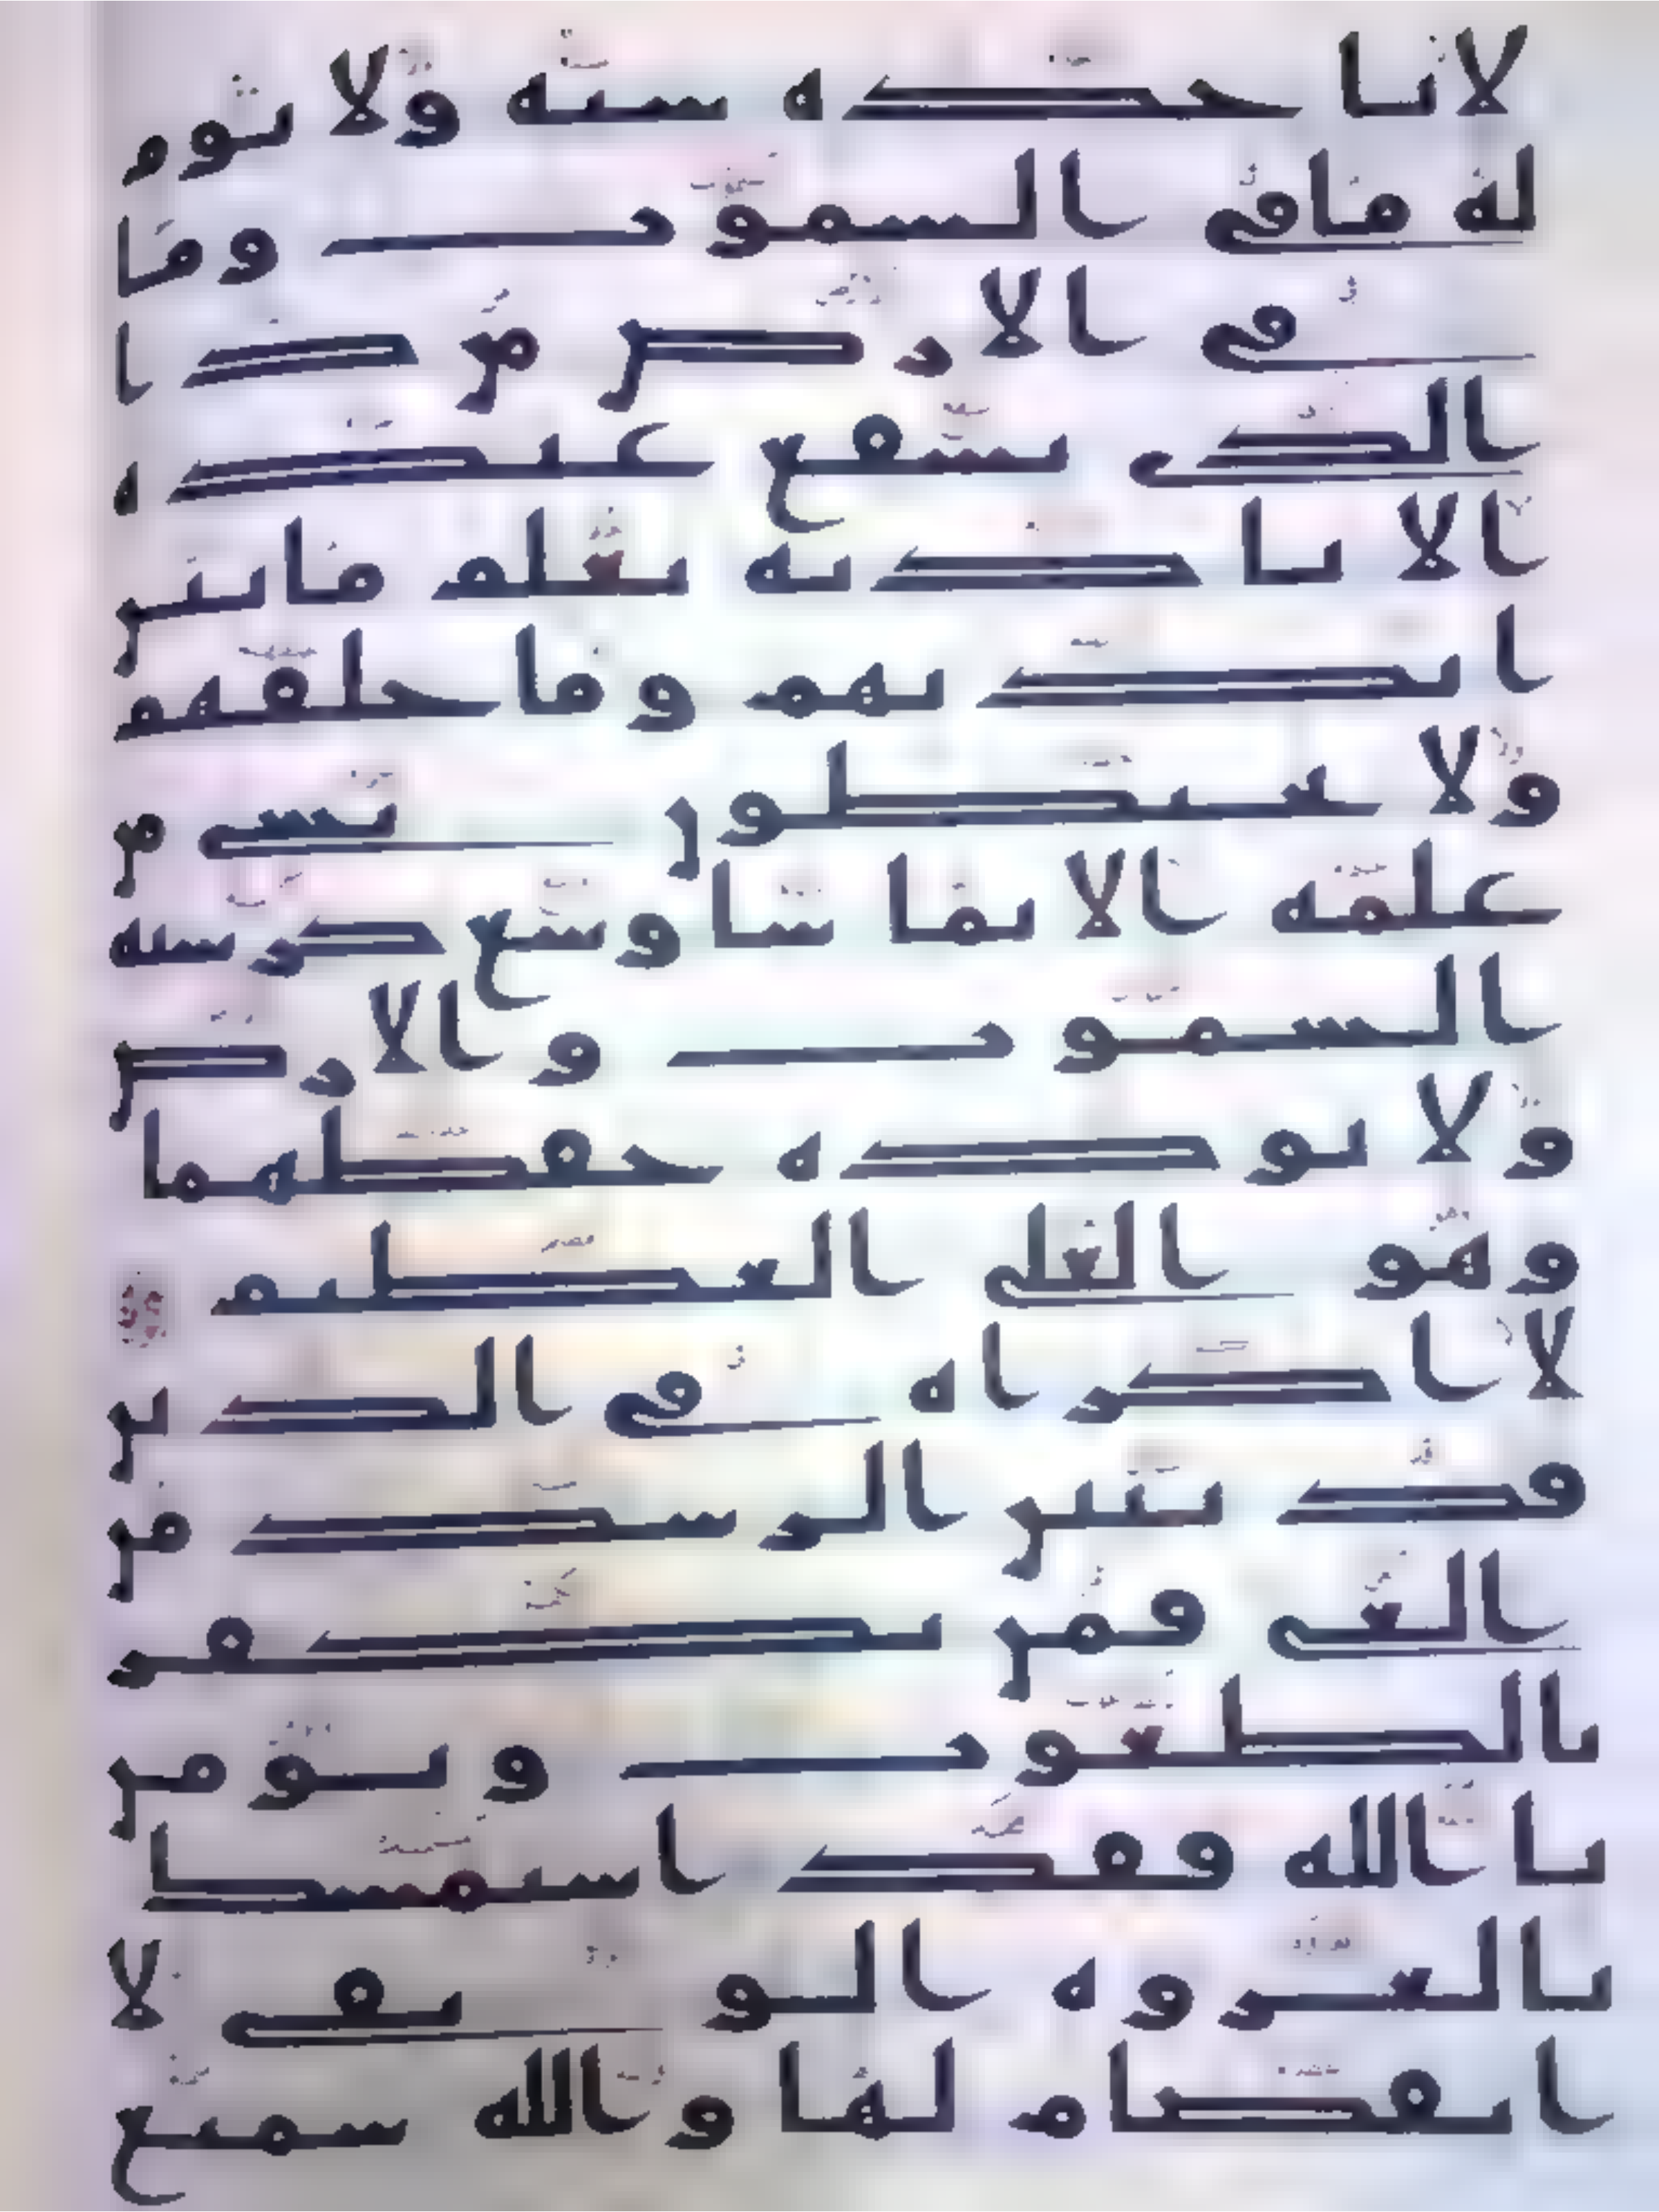 لا تاخذه سنة ولا نوم
له ما في السموت وما
في الارض من ذا
الذي يشفع عنده
الا باذنه يعلم ما بين
ايديهم وما خلفهم
ولا يحيطون بشي من
علمه الا بما شا وسع كرسيه
السموت والارض
ولا يوده حفظهما
وهو العلي العظيم
لا اكراه في الدين
قد تبين الرشد من
الغي فمن يكفر
بالطغوت ويومن
بالله فقد استمسكا
بالعروة الوثقى لا
انفصام لها والله سميع